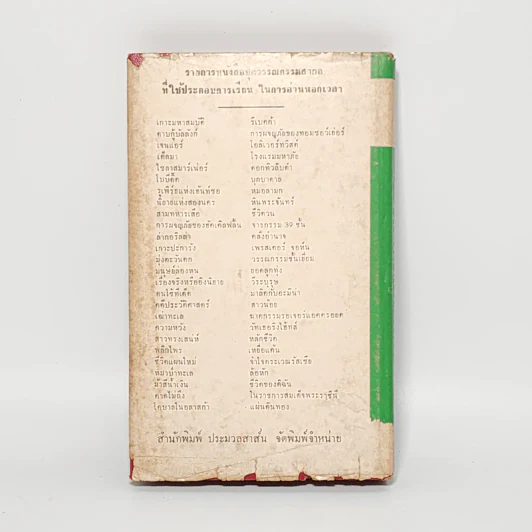 รายการหนังสือชุดวรรณกรรมสากล
ที่ใช้ประกอบการเรียน ในการอ่านนอกเวลา
เกาะมหาสมบัติ
คาบกู้บัลลังก์
เจนแอร์
เค็ลมา
ไซลาสมาร์เน่อร์
โมบีดิ๊ค
รูเพิร์ธแห่งเห็นท์ซอ
นิยายแห่งสองนคร
สามทหารเสือ
การผจญภัยของฮัคเคิลฟิลน์
ล่ากอริลล่า
เกาะปะการัง
มุ่งตะวันตก
มนุษย์ล่องหน
เรื่องจริงหรืออิงนิยาย
คนใช้ที่เด็ค
คดีประวัติศาสตร์
เฒ่าทะเล
ความหวัง
สาวทรงเสน่ห์
พลิกไพร
ชีวิตแผนใหม่
หมาป่าทะเล
ม้าสีน้ำเงิน
คาดไม่ถึง
โคบาลในอลาสก้า
รีเบคก้า
การผจญภัยของทอมซอว์เย่อร์
โอลิเวอร์ทวิสต์
โรงแรมมหาภัย
ดอกทิวลิบดำ
บุลบาดาล
หมอลามก
หินพระจันทร์
ชีวิตวน
จารกรรม 39 ขั้น
คลั่งอำนาจ
เพรสเตอร์ จอห์น
วรรณกรรมชั้นเยี่ยม
ยอดลูกทุ่ง
วีระบุรุษ
มาลัคกับอะมีน่า
สาวน้อย
ฆาตกรรมรอเจอร์แอคครอยด
วัทเธอริงไฮ้ทส์
หลักชีวิต
เหยื่อแค้น
จ้าวไจกระเวณรัสเซีย
ล้อหัก
ชีวิตของดิฉัน
ในราชการสมเด็จพระราชินี
แผ่นดินทอง
สำนักพิมพ์ ประมวลสาส์น จัดพิมพ์จำหน่าย